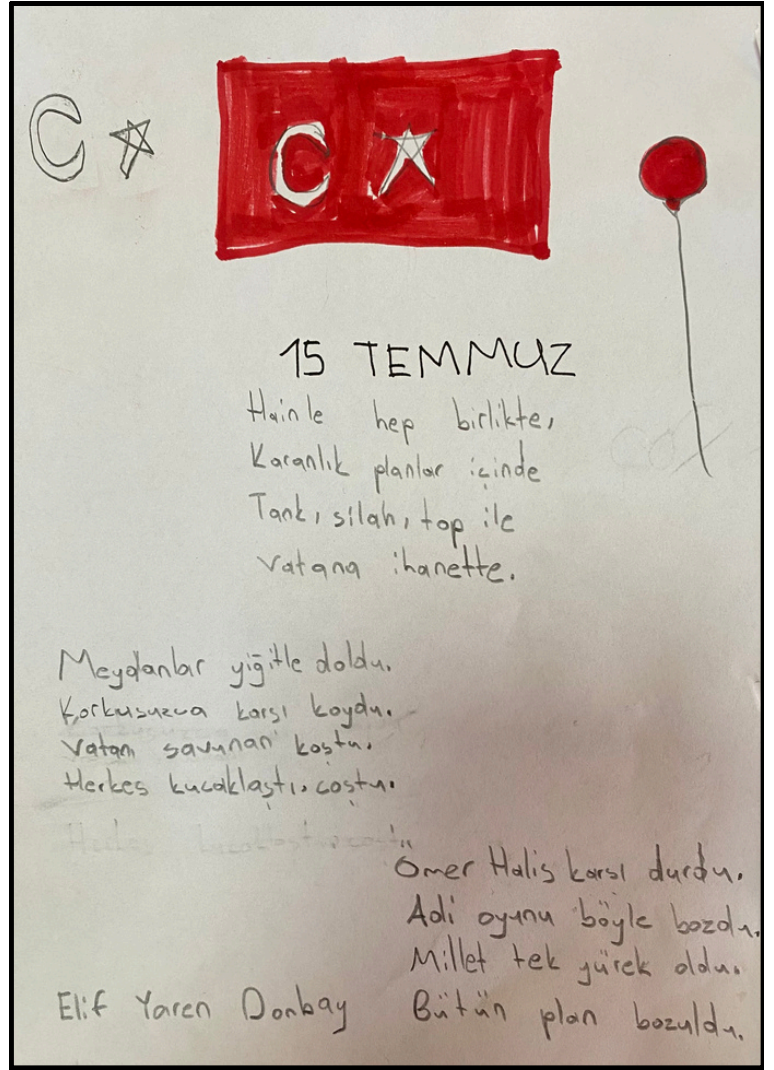 15 TEMMUZ
Hainle hep birlikte,
Karanlık planlar içinde
Tank, silah, top ile
vatana ihanette.
Meydanlar yiğitle doldu.
Korkusuzca karşı koydu.
Vatanı savunan koştu.
Herkes kucaklaştı, coştu.
Ömer Halis karşı durdu.
Adi oyunu böyle bozdu.
Millet tek yürek oldu.
Bütün plan bozuldu.
Elif Yaren Donbay